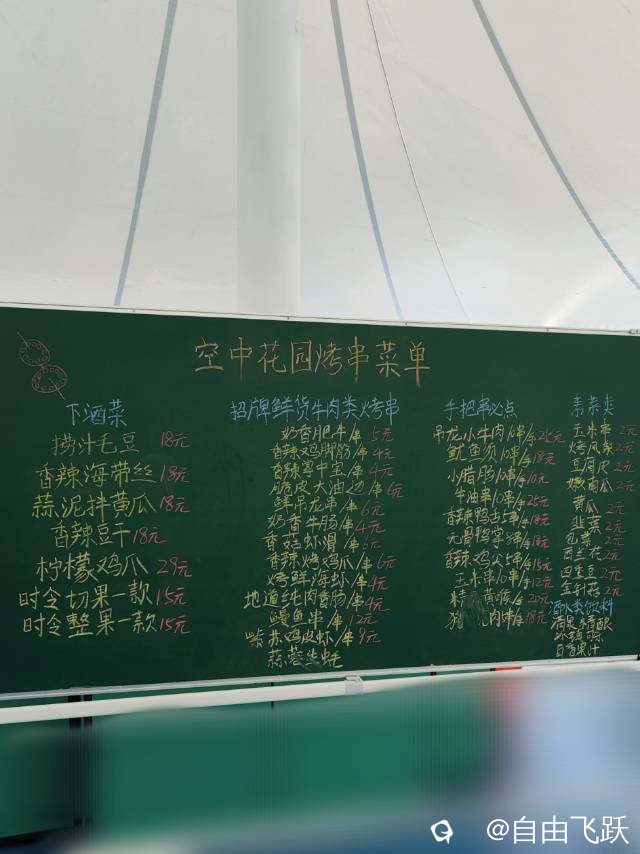 空中花园烤串菜单
下酒菜
捞汁毛豆 18元
香辣海带丝 18元
蒜泥拌黄瓜 18元
香辣豆干 18元
柠檬鸡爪 29元
时令切果一款 15元
时令整果一款 15元
招牌鲜货牛肉类烤串
奶香肥牛/串 5元
香辣鸡脚筋/串 4元
香辣掌中宝/串 4元
脆皮大油边/串 6元
鲜吊龙串/串 6元
奶香牛肠/串 4元
香菇虾滑/串 6元
香辣烤鸡爪/串 6元
烤鲜海虾/串 4元
地道纯肉香肠/串 4元
鳗鱼串/串 12元
紫苏鸡皮虾/串 9元
蒜蓉生蚝
手把串必点
吊龙小牛肉10串/份 25元
鱿鱼须10串/份 18元
小腊肠10串/份 10元
牛油串10串/份 25元
香辣鸭舌5串/份 18元
无骨鸭掌3串/份 18元
香辣鸡尖5串/份 15元
玉米串10串/份 12元
20元
肉串/份 18元
素菜类
玉米串 2元
烤凤梨 2元
豆腐皮 2元
嫩南瓜 2元
黄瓜 2元
韭菜 2元
包菜 2元
西兰花 2元
四季豆 2元
金针菇 2元
酒水类饮料
清泉
百香果汁
@自由飞跃